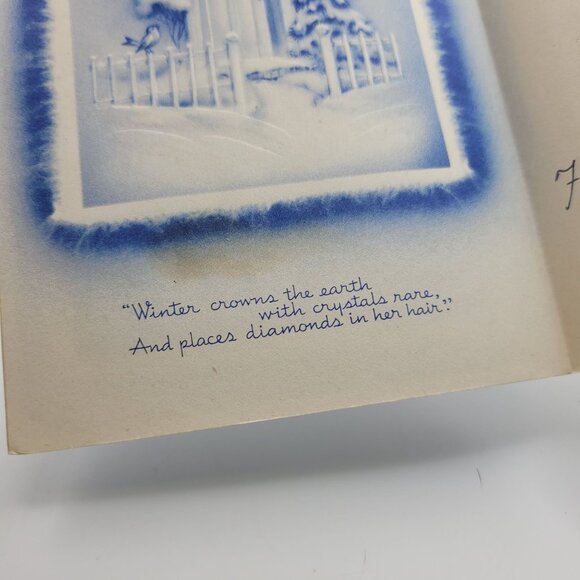 "Winter crowns the earth
with crystals rare,
And places diamonds in her hair."